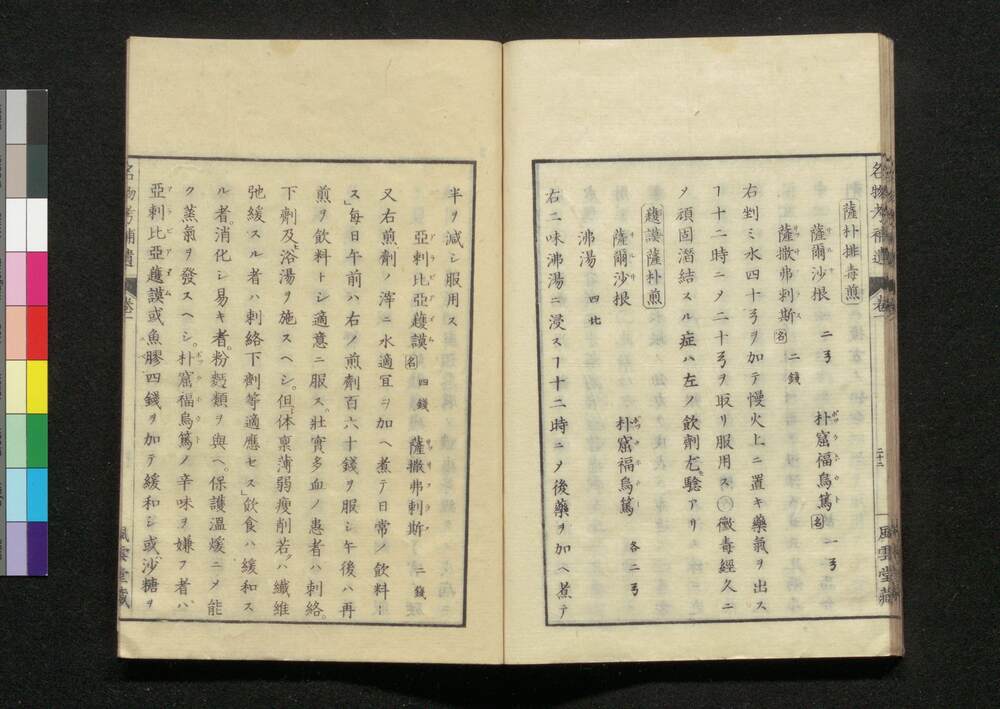 名物考補遺 卷一 二十二 風雲堂藏
薩朴排毒煎
薩爾沙根 二弓 朴窟福烏篤 名 一弓
薩撒弗剌斯 名 二錢
右剉ミ水四十弓ヲ加テ慢火上ニ置キ藥氣ヲ出ス
ヿ十二時ニノ二十弓ヲ取リ服用ス○黴毒經久ニ
ノ頑固溜結スル症ハ左ノ飲劑尤モ驗アリ
護謨薩朴煎
薩爾沙根 朴窟福烏篤 各二弓
沸湯 四比
右二味沸湯ニ浸スヿ十二時ニノ後藥ヲ加ヘ煮テ
半ヲ減シ服用ス
亞剌比亞護謨 名 四錢 薩撒弗剌斯 二錢
又右煎劑ノ滓ニ水適宜ヲ加ヘ煮テ日常ノ飲料ト
ス毎日午前ハ右ノ煎劑百六十錢ヲ服シ午後ハ再
煎ヲ飲料トシ適意ニ服ス壯實多血ノ患者ハ刺絡
下劑及ヒ浴湯ヲ施スヘシ但シ体稟薄弱瘦削若クハ纖維
弛緩スル者ハ刺絡下劑等適應セス飲食ハ緩和ス
ル者消化シ易キ者粉麪類ヲ與ヘ保護溫煖ニノ能
ク蒸氣ヲ發スヘシ朴窟福烏篤ノ辛味ヲ嫌フ者ハ
亞剌比亞護謨或ハ魚膠四錢ヲ加テ緩和シ或ハ沙糖ヲ
名物考補遺 卷一 風雲堂藏